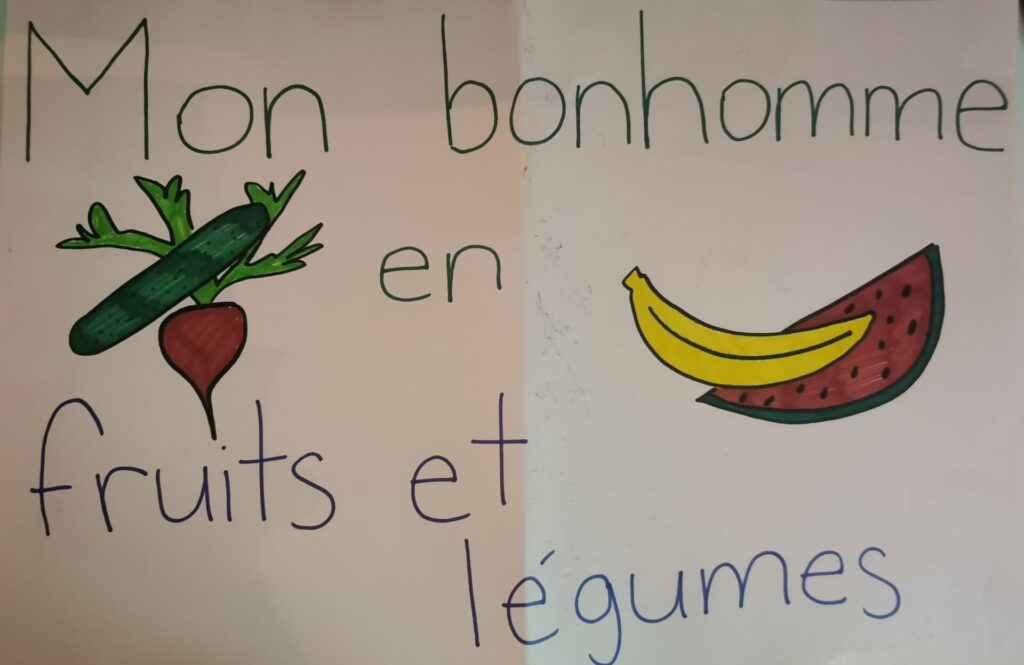 Mon bonhomme
en
fruits et
légumes